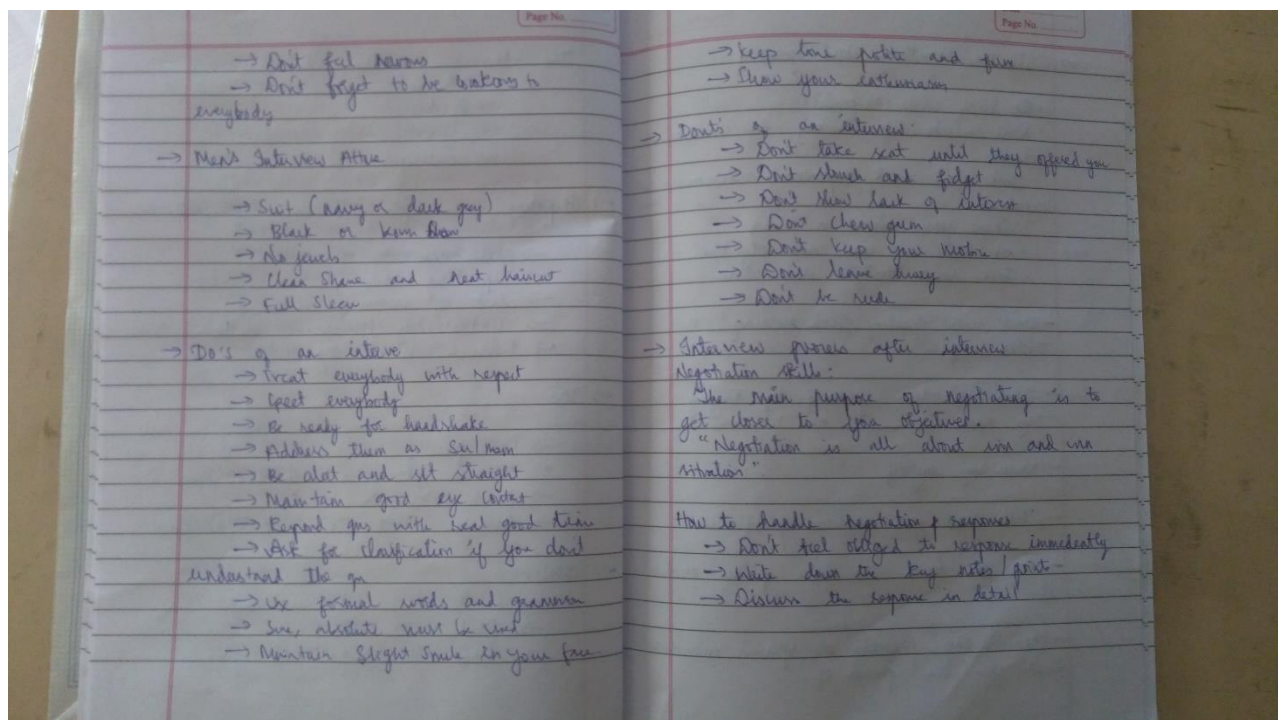 Page No.
→ Don't feel nervous
→ Don't forget to be to
everybody
→ Men's Interview Attire
→ Suit (navy or dark grey)
→ Black or
→ No jewels
→ Clean Shave and neat haircut
→ Full Sleeve
→ Do's of an interve
→ Treat everybody with respect
→ Greet everybody
→ Be ready for handshake
→ Address them as Sir/Mam
→ Be alert and sit straight
→ Maintain good eye contact
→ Respond qus with real good time
→ Ask for clarification if you don't
understand the qn
→ Use formal words and grammer
→ Sure, absolute must be used
→ Maintain Slight Smile in your face
Page No.
→ keep tone polite and firm
→ Show your enthusiasm
→ Dont's of an interview.
→ Don't take seat until they offered you
→ Don't and fidget
→ Don't show lack of interest
→ Don't chew gum
→ Don't keep your mobile
→ Don't leave
→ Don't be rude
→ Interview process after interview
Negotiation skills.
The main purpose of negotiating is to
get closer to your objectives.
"Negotiation is all about win and win
situation"
How to handle negotiation & responses
→ Don't feel obliged to response immedently
→ Write down the key notes/point
→ Discuss the response in detail